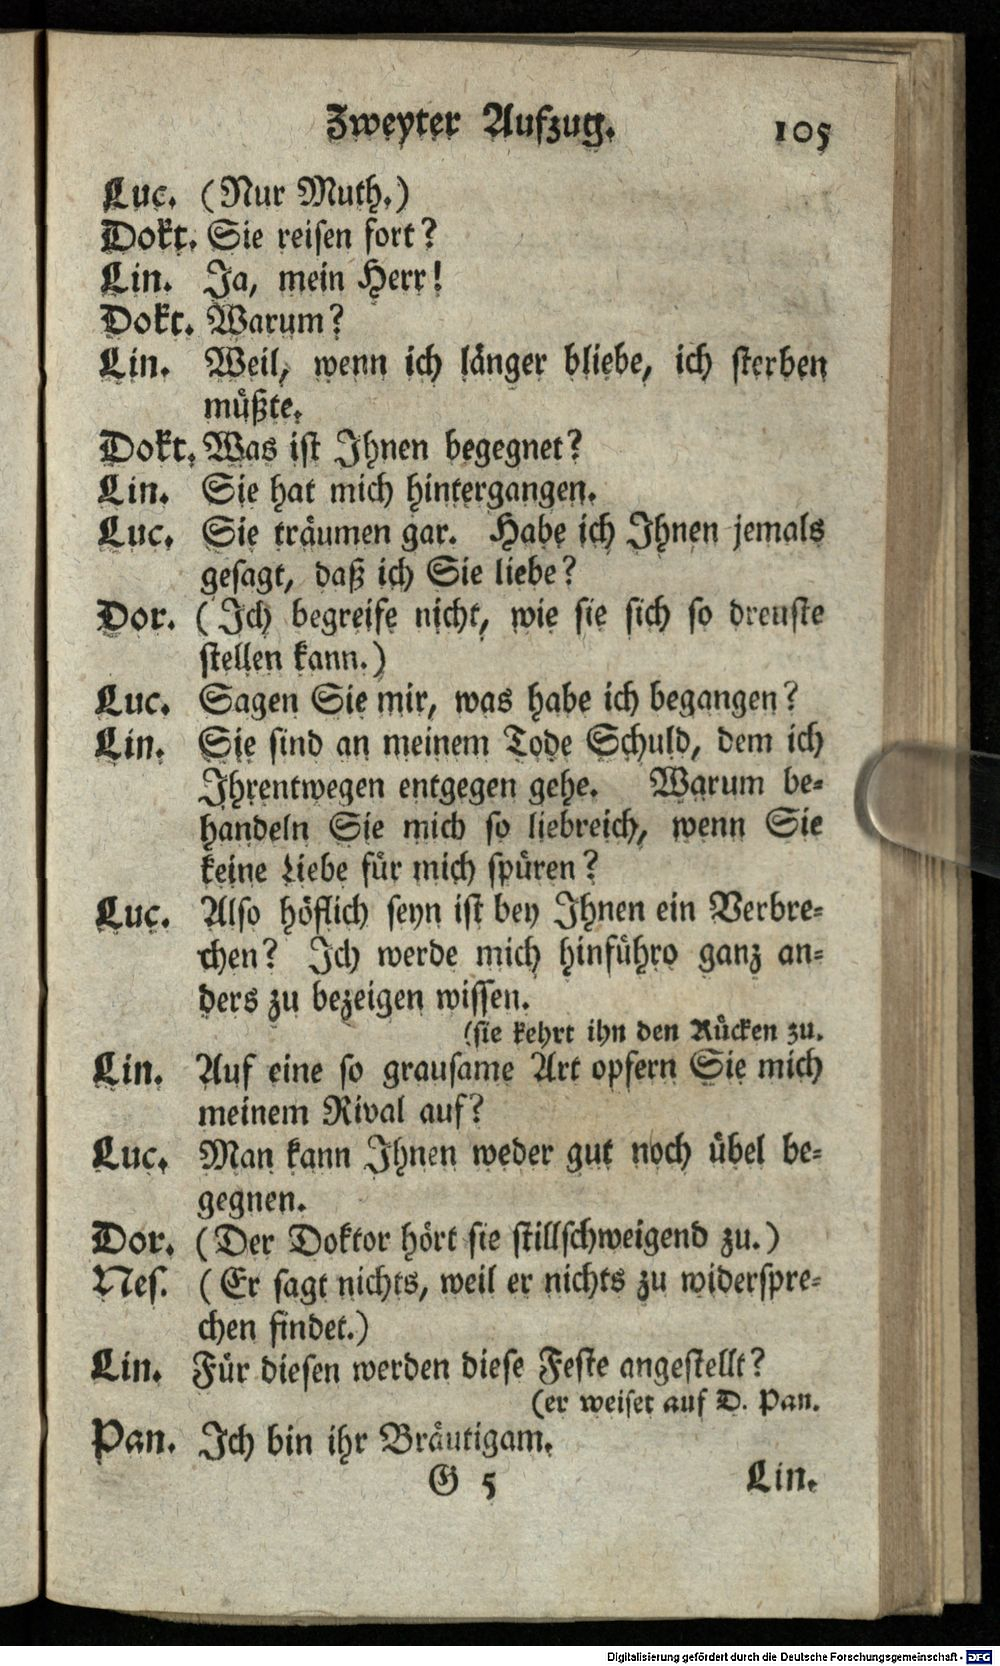 Zweyter Aufzug. 105
Luc. (Nur Muth.)
Dokt. Sie reisen fort?
Lin. Ja, mein Herr!
Dokt. Warum?
Lin. Weil, wenn ich länger bliebe, ich sterben
müßte.
Dokt. Was ist Ihnen begegnet?
Lin. Sie hat mich hintergangen.
Luc. Sie träumen gar. Habe ich Ihnen jemals
gesagt, daß ich Sie liebe?
Dor. (Ich begreife nicht, wie sie sich so dreuste
stellen kann.)
Luc. Sagen Sie mir, was habe ich begangen?
Lin. Sie sind an meinem Tode Schuld, dem ich
Ihrentwegen entgegen gehe. Warum be-
handeln Sie mich so liebreich, wenn Sie
keine Liebe für mich spüren?
Luc. Also höflich seyn ist bey Ihnen ein Verbre-
chen? Ich werde mich hinführo ganz an-
ders zu bezeigen wissen.
(sie kehrt ihn den Rücken zu.
Lin. Auf eine so grausame Art opfern Sie mich
meinem Rival auf?
Luc. Man kann Ihnen weder gut noch übel be-
gegnen.
Dor. (Der Doktor hört sie stillschweigend zu.)
Nes. (Er sagt nichts, weil er nichts zu widerspre-
chen findet.)
Lin. Für diesen werden diese Feste angestellt?
(er weiset auf D. Pan.
Pan. Ich bin ihr Bräutigam.
G 5 Lin.
Digitalisierung gefördert durch die Deutsche Forschungsgemeinschaft - DFG